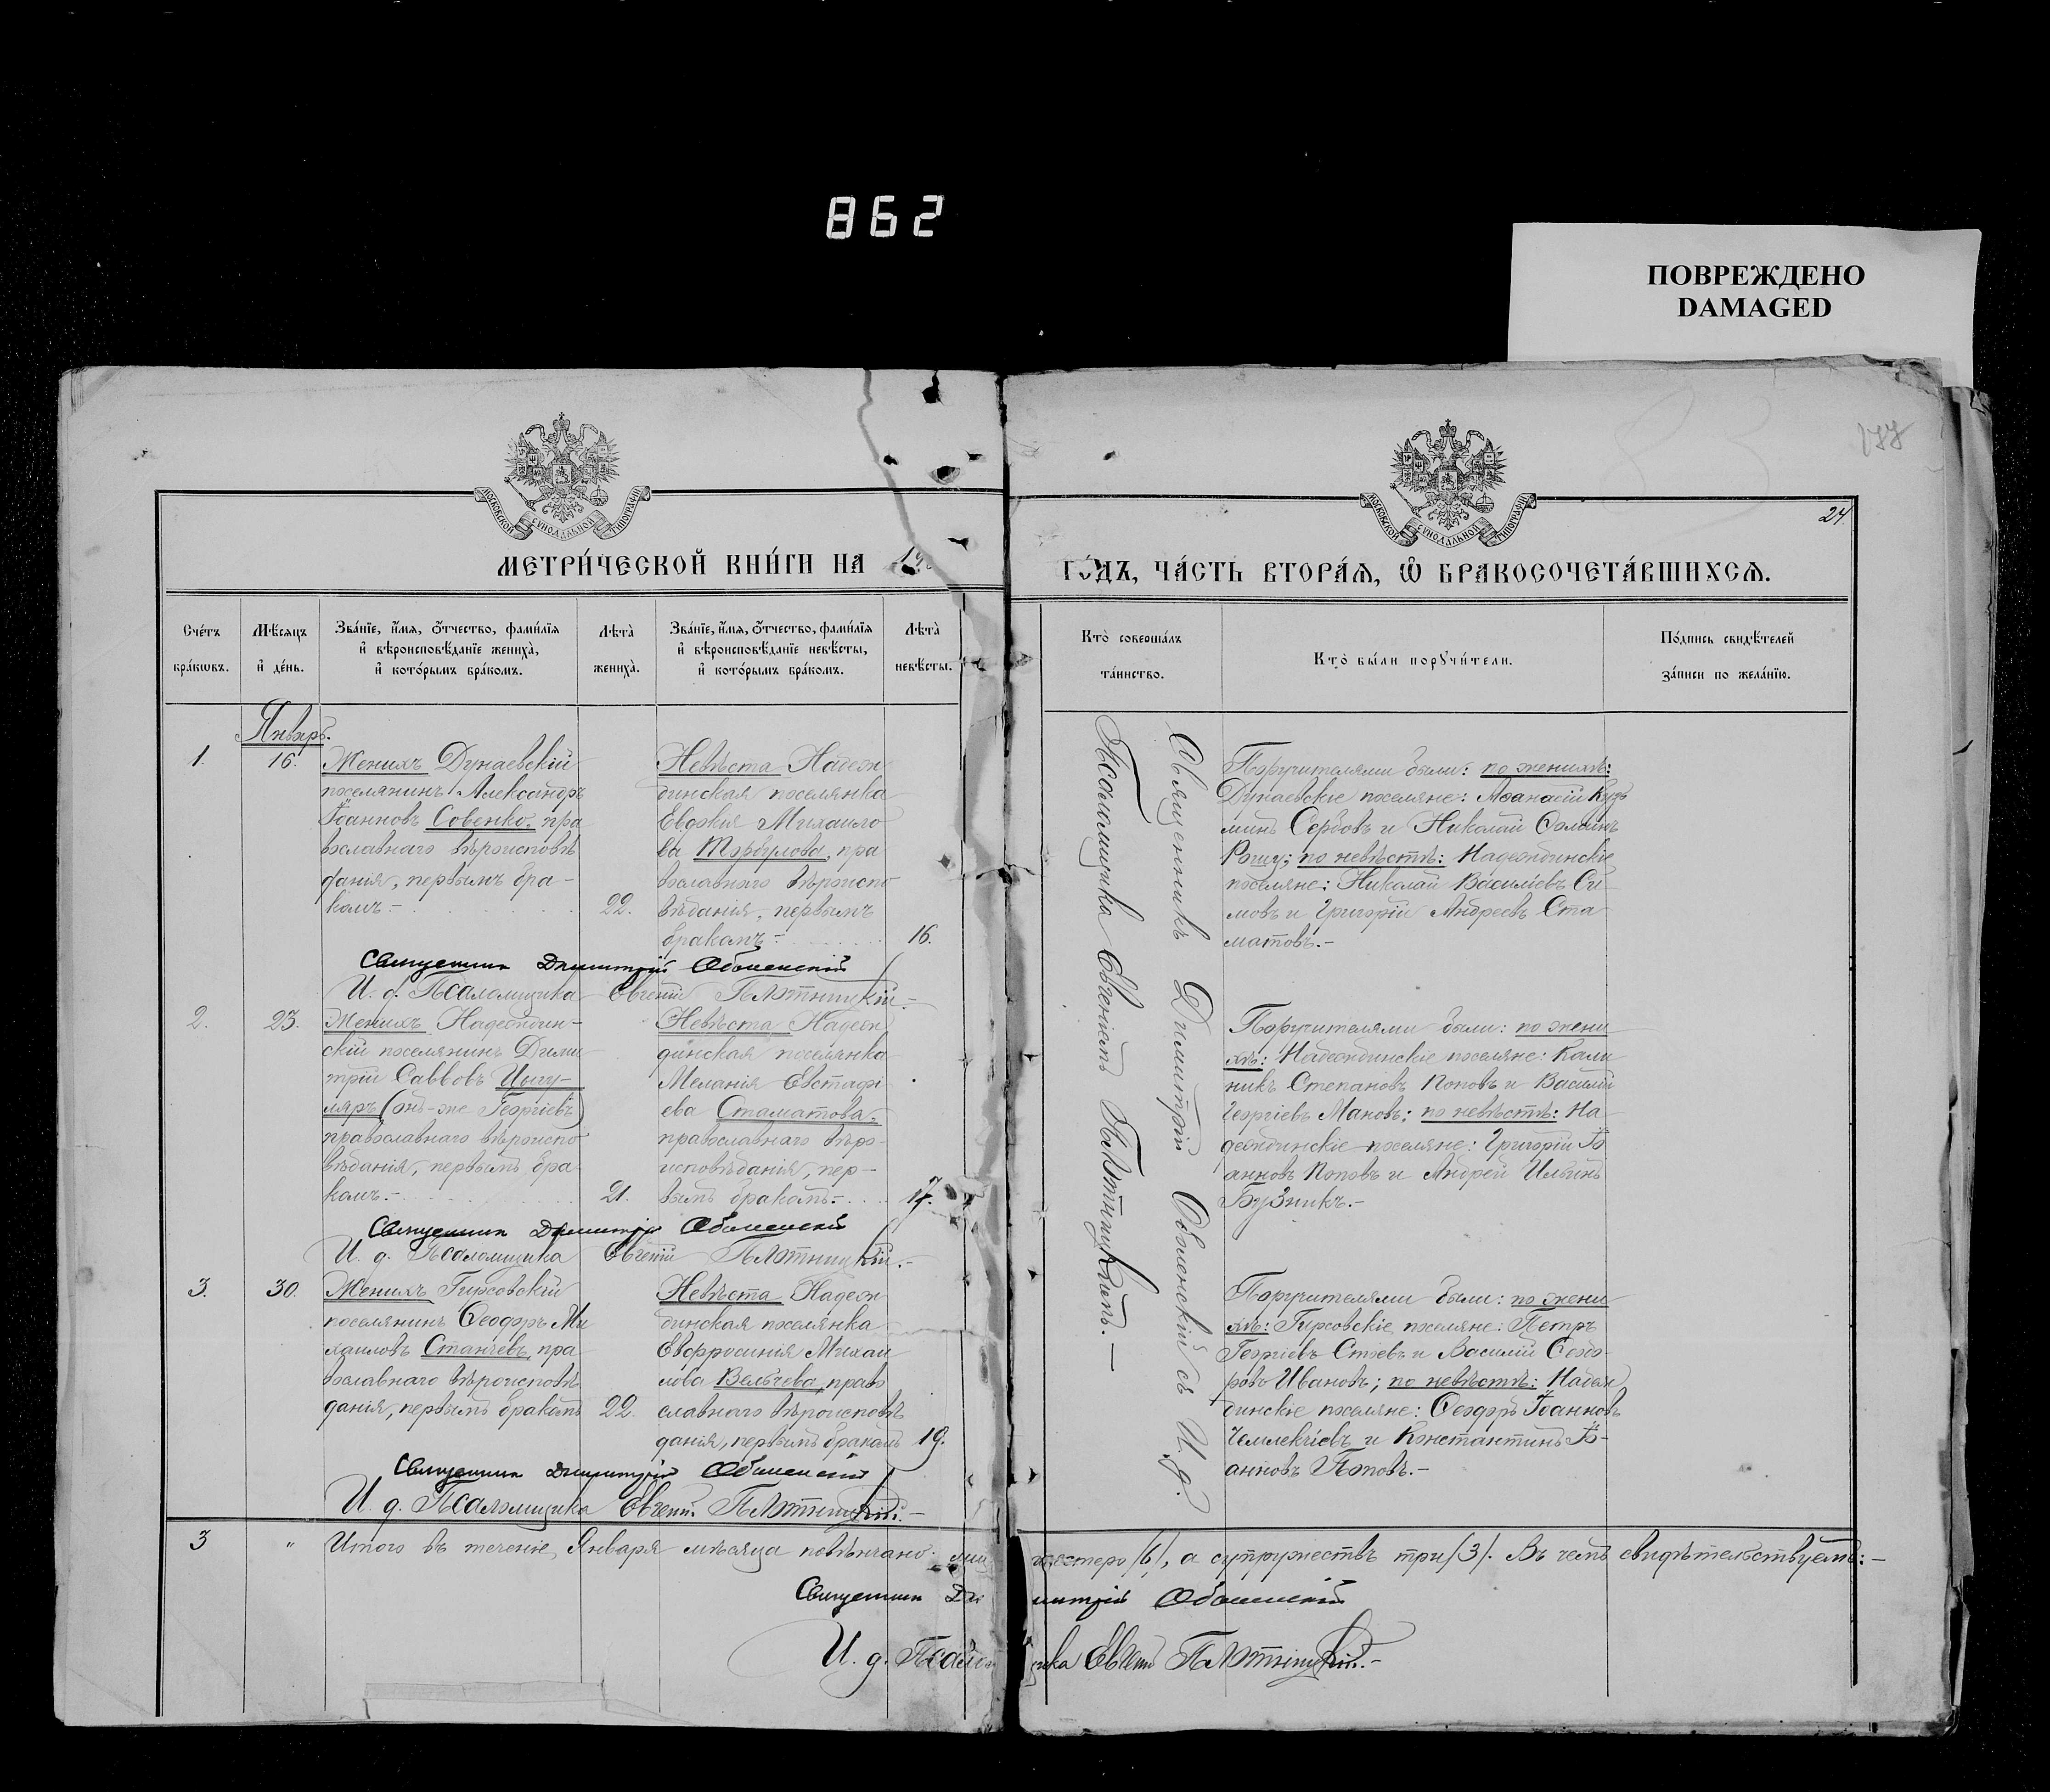 862
ПОВРЕЖДЕНО
DAMAGED
МОСКОВСКОЙ СУНОДАЛЬНОЙ ТИПОГРАФІИ
МОСКОВСКОЙ СУНОДАЛЬНОЙ ТИПОГРАФІИ
24
МЕТРИ́ЧЕСКОЙ КНИ́ГИ НА
ГО́ДЪ, ЧА́СТЬ ВТОРА́Я, Ѡ҆ БРАКОСОЧЕТА́ВШИХСЯ.
Сче́тъ бра́кѡвъ.
Мѣ́сяцъ и҆ де́нь.
Зва́нїе, и҆́мя, ѻ҆́тчество, фами́лїя и҆ вѣроисповѣ́данїе жениха̀, и҆ кото́рымъ бра́комъ.
Лѣ́та̀ жениха̀.
Зва́нїе, и҆́мя, ѻ҆́тчество, фами́лїя и҆ вѣроисповѣ́данїе невѣ́сты, и҆ кото́рымъ бра́комъ.
Лѣ́та̀ невѣ́сты.
Кто̀ соверша́лъ та́инство.
Кто̀ бы́ли порꙋчи́тели.
По́дпись свидѣ́телей за́писи по жела́нїю.
Январь.
1.
16.
Женихъ Дунаевскій
поселянинъ Александръ
Іоанновъ Совенко, пра
вославнаго вѣроисповѣ
данія, первымъ бра-
комъ.-
22.
Невѣста Надеж
динская поселянка
Евдокія Михаило
ва Торбулова, пра
вославнаго вѣроиспо
вѣданія, первымъ
бракомъ.-
16.
Поручителями были: по женихѣ:
Дунаевскіе поселяне: Аѳанасій Кузь
минъ Сербовъ и Николай
по невѣстѣ: Надеждинскіе
поселяне: Николай Васильевъ Си-
мовъ и Григорій Андреевъ Ста-
матовъ.-
Священникъ Димитрій Оболенскій
И. д. Псаломщика Евгеній Плотницкій.-
2.
23.
Женихъ Надеждин-
скій поселянинъ Дими
трій Саввовъ Цыгу-
ляръ (онъ-же Георгіевъ)
православнаго вѣроиспо
вѣданія, первымъ бра
комъ.-
21.
Невѣста Надеж
динская поселянка
Меланія Евстафі
ева Стаматова,
православнаго вѣро-
исповѣданія, пер-
вымъ бракомъ.-
17.
Поручителями были: по жени
хѣ: Надеждинскіе поселяне: Кали
никъ Степановъ Поповъ и Василій
Георгіевъ Мановъ; по невѣстѣ: На
деждинскіе поселяне: Григорій Іо
анновъ Поповъ и Андрей Ильинъ
Бузникъ.-
Священникъ Димитрій Оболенскій
И. д. Псаломщика Евгеній Плотницкій.-
3.
30.
Женихъ Гирсовскій
поселянинъ Ѳеодоръ Ми
хаиловъ Станчевъ, пра
вославнаго вѣроисповѣ
данія, первымъ бракомъ
22.
Невѣста Надеж
динская поселянка
Евфросинія Михаи
лова Вельчева, право
славнаго вѣроисповѣ
данія, первымъ бракомъ
19.
Поручителями были: по жени
хѣ: Гирсовскіе поселяне: Петръ
Георгіевъ Стоевъ и Василій Ѳеодо-
ровъ Ивановъ; по невѣстѣ: Надеж
динскіе поселяне: Ѳеодоръ Іоанновъ
Чемлекчіевъ и Константинъ Іо-
анновъ Поповъ.-
Священникъ Димитрій Оболенскій
И. д. Псаломщика Евгеній Плотницкій.-
Священникъ Димитрій Оболенскій съ И. д.
Псаломщика Евгеніемъ Плотницкимъ.-
3
"
Итого въ теченіе Января мѣсяца повѣнчано
шестеро /6/, а супружествъ три /3/. Въ чемъ свидѣтельствуемъ:-
Священникъ Димитрій Оболенскій
И. д. Псаломщика Евгеній Плотницкій.-